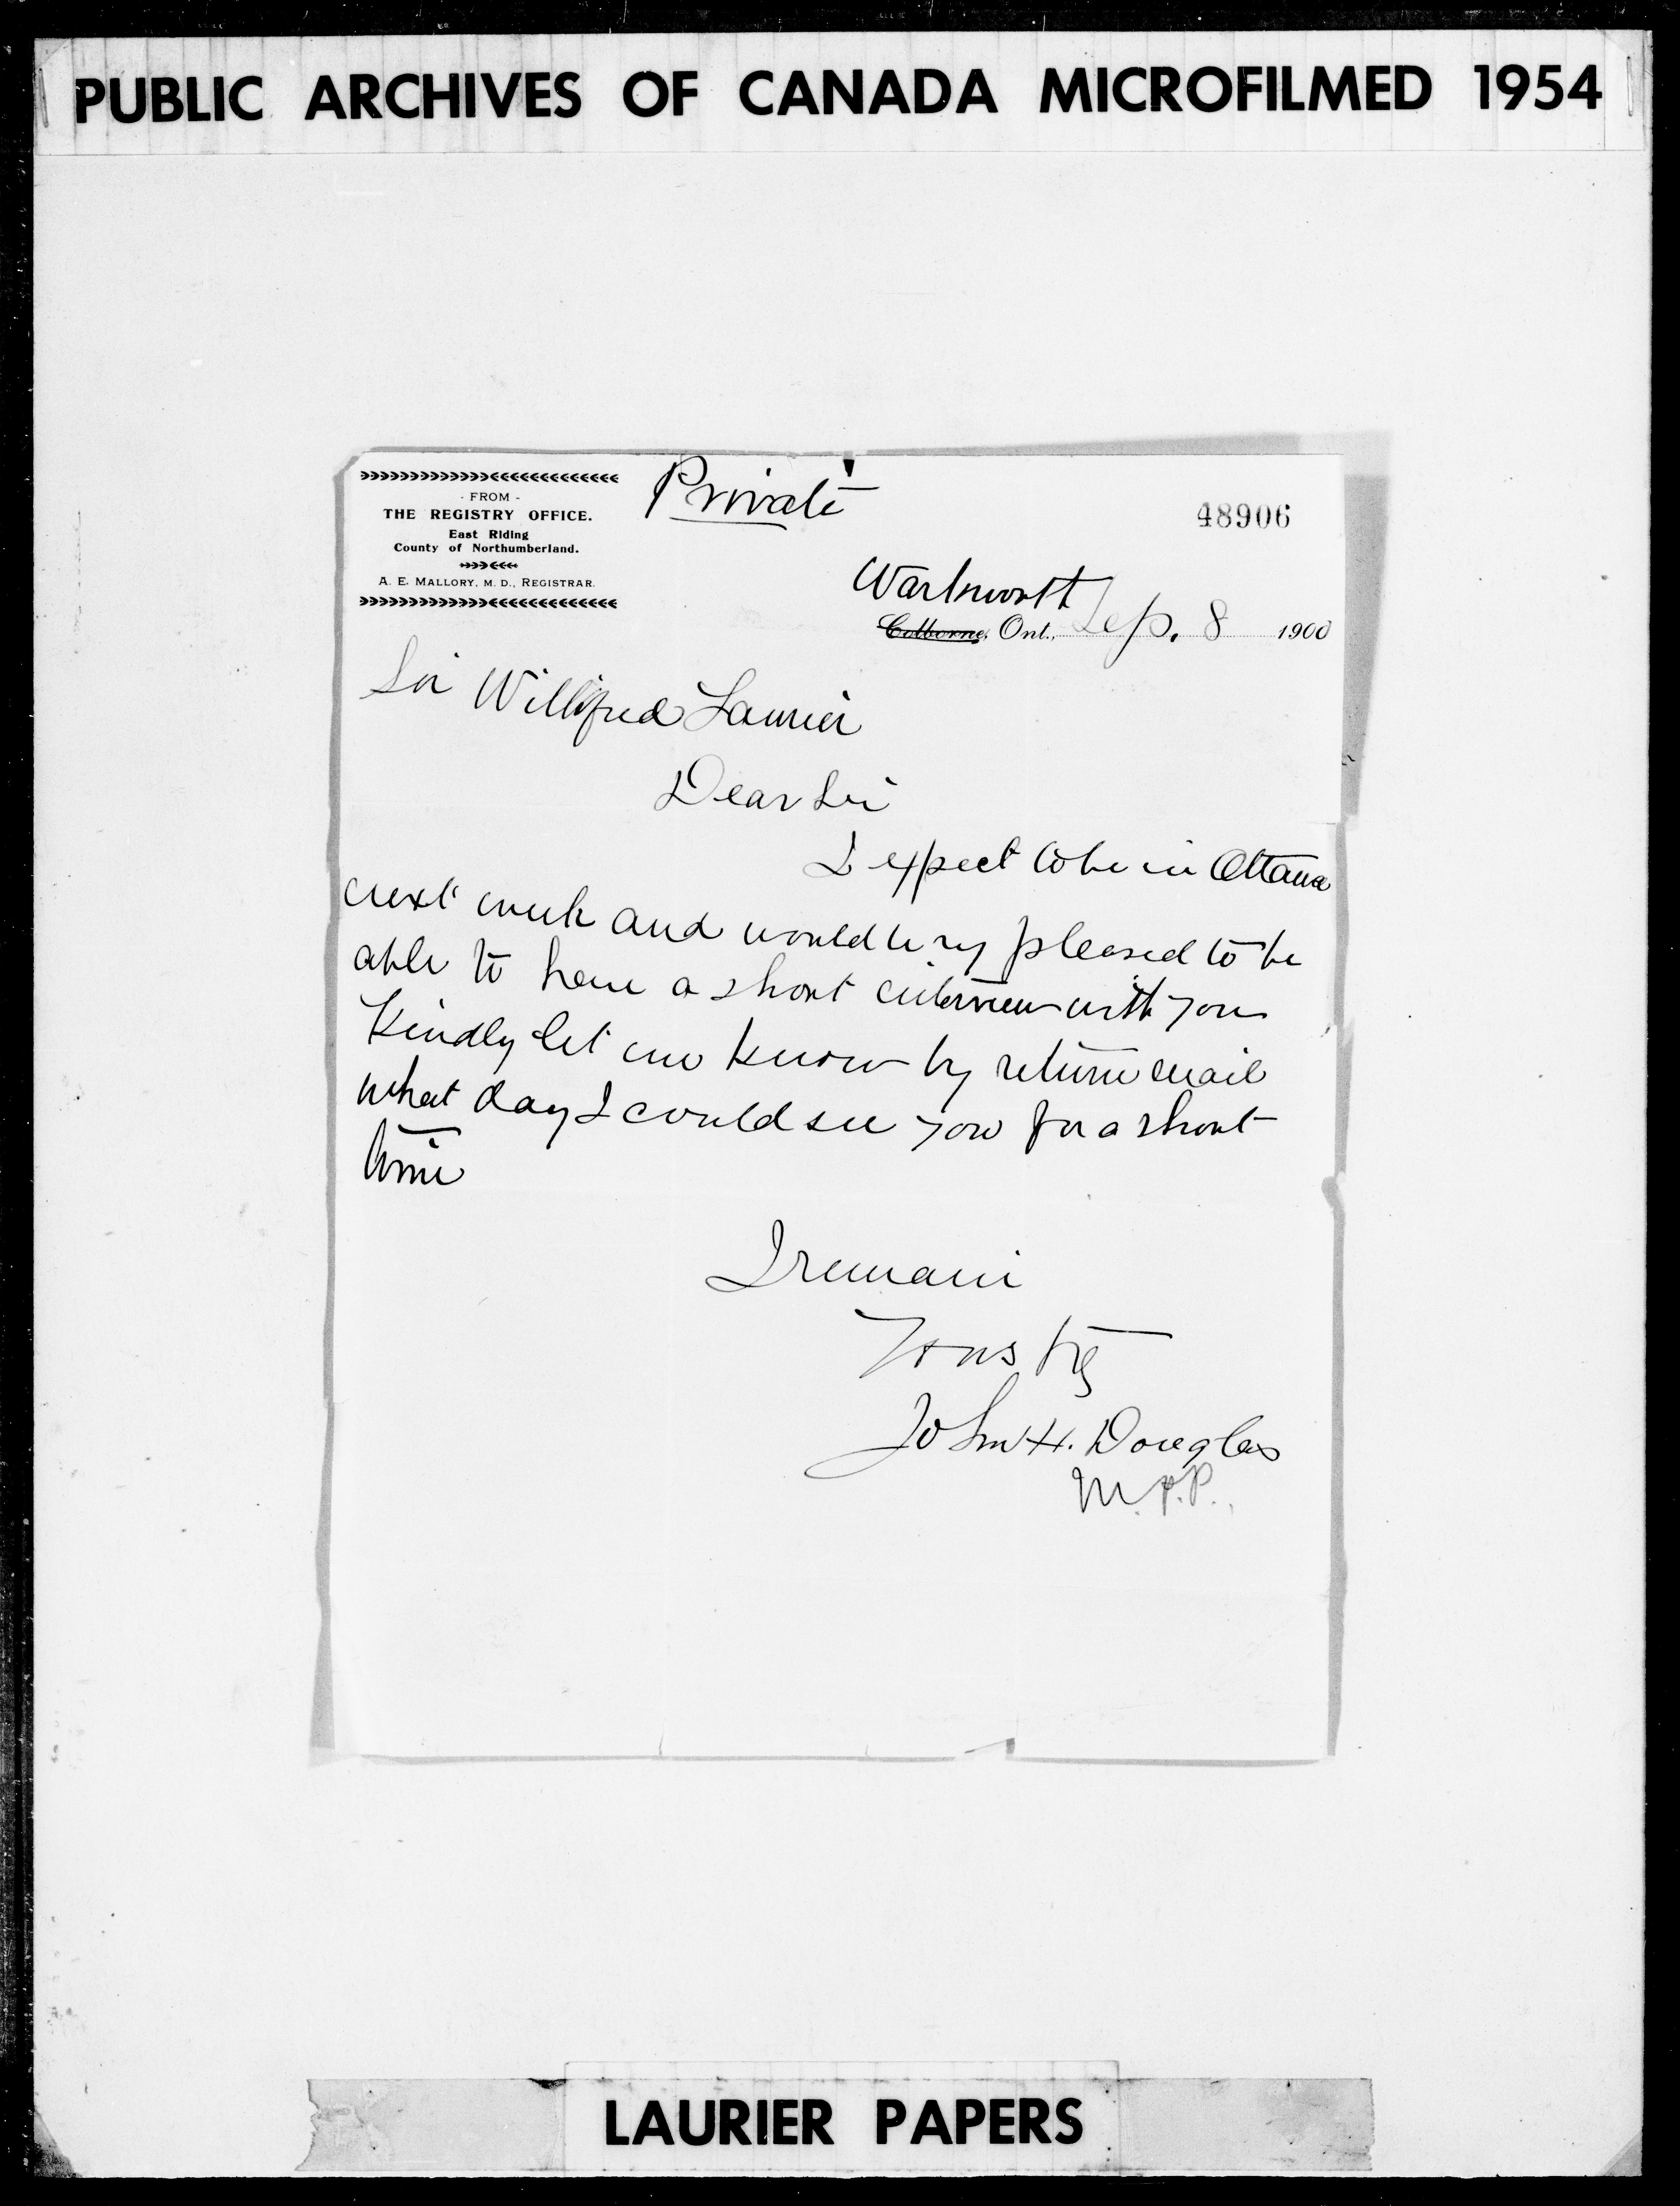 PUBLIC ARCHIVES OF CANADA MICROFILMED 1954
Private
48906
- FROM -
THE REGISTRY OFFICE.
East Riding
County of Northumberland.
A. E. MALLORY, M. D., REGISTRAR.
Warkworth
Colborne, Ont., Sep. 8 1900
Sir Willifred Laurier
Dear Sir
I expect to be in Ottawa
next week and would be very pleased to be
able to have a short interview with you
Kindly let me know by return mail
what day I could see you for a short
time
I remain
Yours try
John H. Douglas
M.P.P.
LAURIER PAPERS